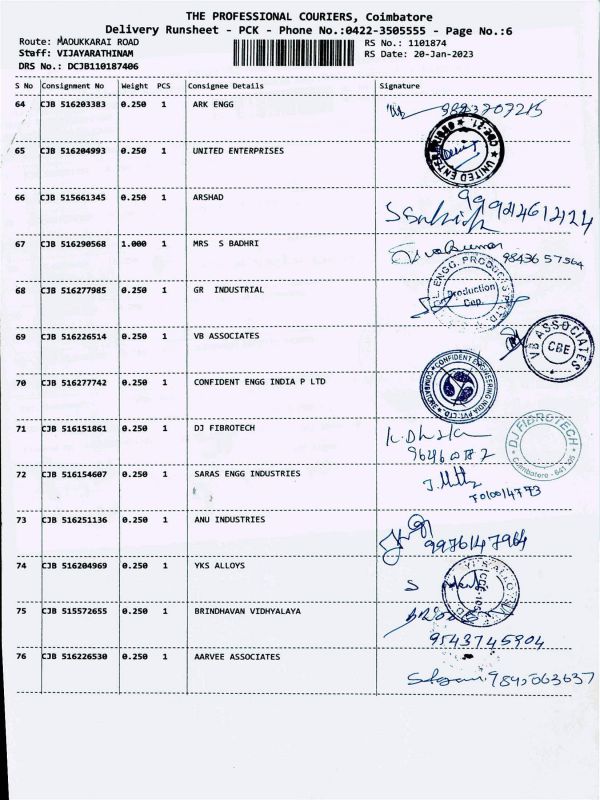 THE PROFESSIONAL COURIERS, Coimbatore
Delivery Runsheet - PCK - Phone No.:0422-3505555 - Page No.:6
Route: MADUKKARAI ROAD RS No.: 1101874
Staff: VIJAYARATHINAM RS Date: 20-Jan-2023
DRS No.: DCJB110187406
S No Consignment No Weight PCS Consignee Details Signature
64 CJB 516203383 0.250 1 ARK ENGG
65 CJB 516204993 0.250 1 UNITED ENTERPRISES UNITED
66 CJB 515661345 0.250 1 ARSHAD
67 CJB 516290568 1.000 1 MRS S BADHRI 9843657564
68 CJB 516277985 0.250 1 GR INDUSTRIAL ENGG. PRODUCTS Production
69 CJB 516226514 0.250 1 VB ASSOCIATES VB ASSOCIATES CBE
70 CJB 516277742 0.250 1 CONFIDENT ENGG INDIA P LTD CONFIDENT ENGINEERING INDIA PVT. LTD. COIMBATORE
71 CJB 516151861 0.250 1 DJ FIBROTECH DJ FIBROTECH Coimbatore
72 CJB 516154607 0.250 1 SARAS ENGG INDUSTRIES
73 CJB 516251136 0.250 1 ANU INDUSTRIES 9976147964
74 CJB 516204969 0.250 1 YKS ALLOYS
75 CJB 515572655 0.250 1 BRINDHAVAN VIDHYALAYA 9543745904
76 CJB 516226530 0.250 1 AARVEE ASSOCIATES